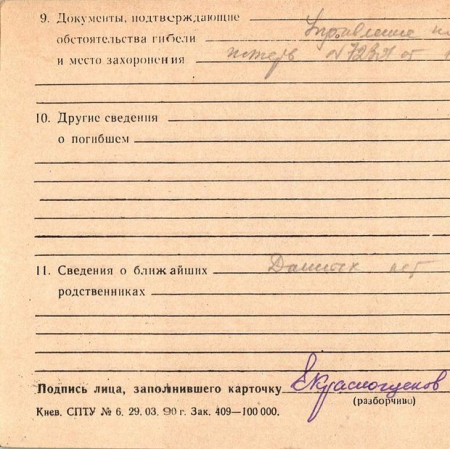 9. Документы, подтверждающие Управление
обстоятельства гибели
и место захоронения потерь
10. Другие сведения
о погибшем
11. Сведения о ближайших Данных нет
родственниках
Подпись лица, заполнившего карточку
(разборчиво)
Киев. СПТУ № 6. 29. 03. 90 г. Зак. 409—100 000.